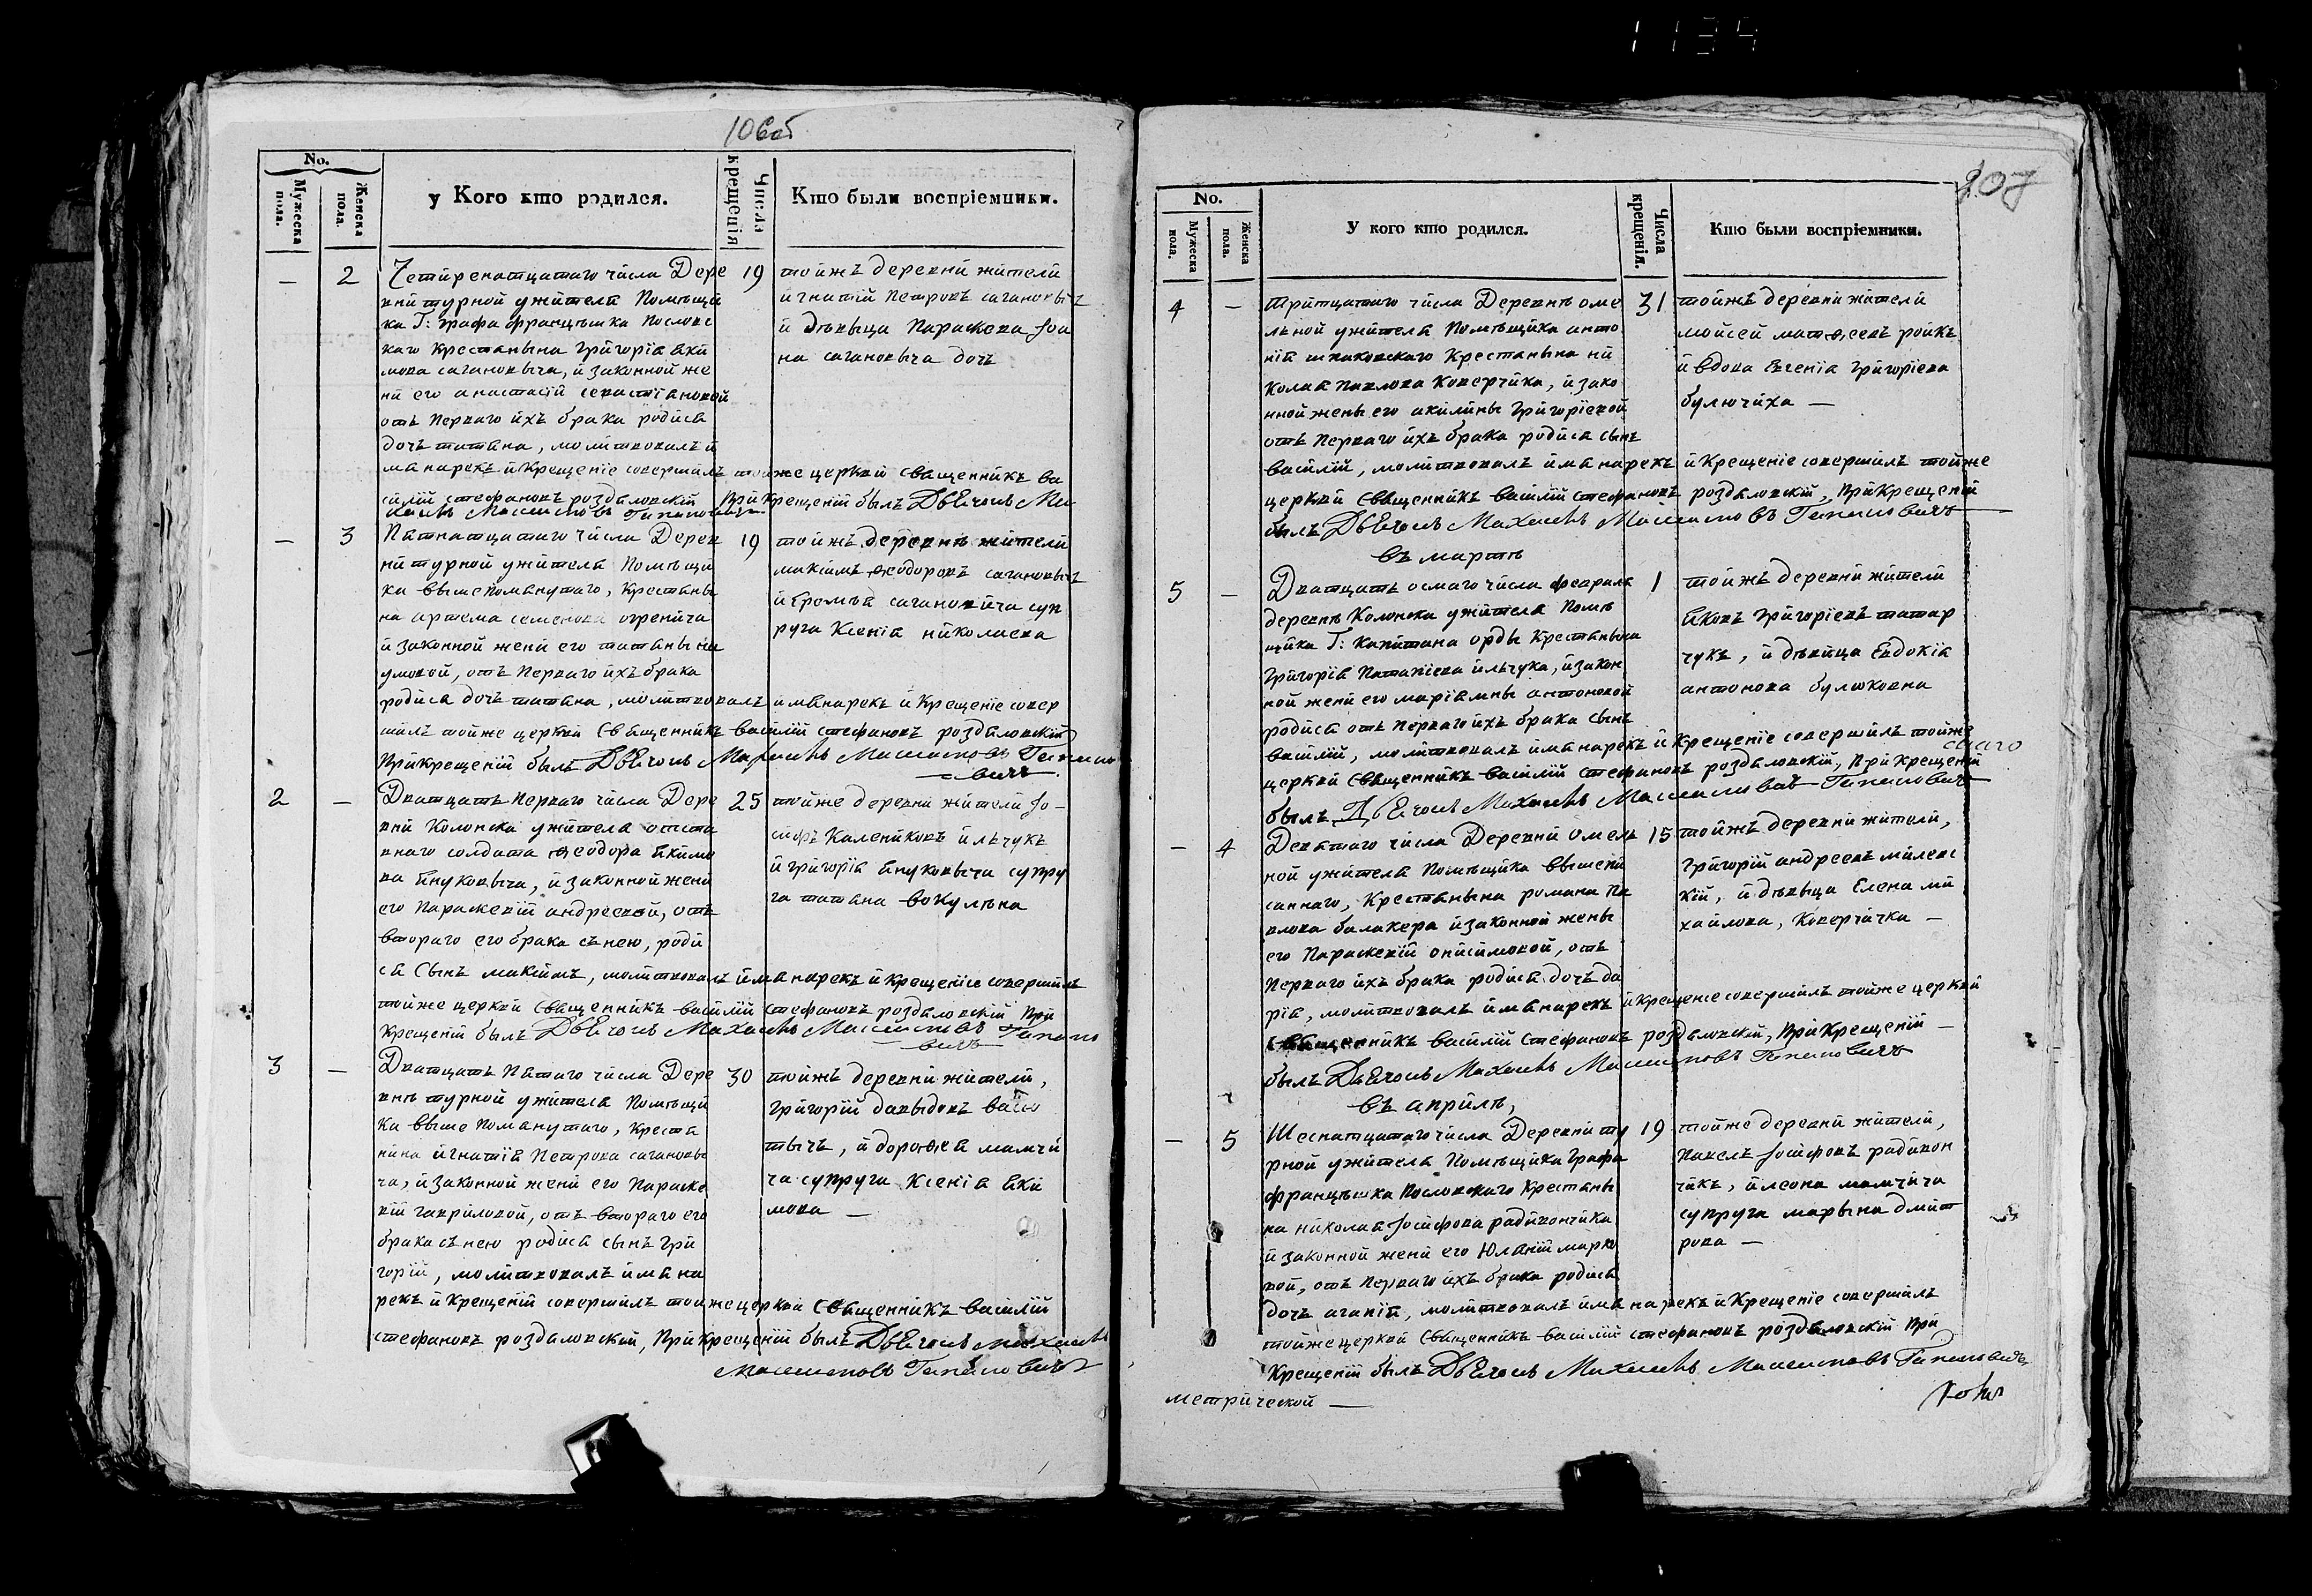 1134
106об
No.
Мужеска пола.
Женска пола.
у Кого кто родился.
Числа крещенія
Кто были воспріемники.
— 2
Четиренатцатаго числа Дере
вни турной ужителя Помѣщи
ка Г: графа францѣшка Пословс
каго Крестьянына григорія яки
мова сагановыча, и законной же
ни его анастасіи севастіановой
отъ перваго ихъ брака родися
дочь татіана, молитвовалъ и
мя нарекъ и Крещеніе совершилъ тойже церкви священникъ ва
силій стефановъ роздяловскій При Крещеніи былъ Дьячокъ Ми
19
тойжъ деревни жители
игнатій Петровъ сагановычъ
и дѣвыца Параскева Іоа
на сагановыча дочь
— 3
Пятнатцатаго числа Дерев
ни турной ужителя Помѣщи
ка вышепомянутаго, Крестяны
на артема семенова
и законной жени его татіаны на
умовой, отъ Перваго ихъ брака
родися дочь татіана, молитвовалъ имя нарекъ и Крещеніе совер
шилъ тойже церкви Священникъ василій стефановъ роздяловскій
При Крещеніи былъ Дьячокъ
вичъ.
19
тойжъ деревнѣ жители
максимъ ѳеодоровъ сагановычъ
и Еремѣя сагановича суп
руга Ксенія николаева
2 —
Дватцать Перваго числа Дере
вни Колонска ужителя отста
внаго солдата ѳеодора якимо
ва януковыча, и законной жени
его Параскевіи андреевой, отъ
втораго его брака съ нею, роди
ся Сынъ максимъ, молитвовалъ имя нарекъ и Крещеніе совершилъ
тойже церкви священникъ василій стефановъ роздяловскій При
Крещеніи былъ Дьячокъ
вичъ
25
тойже деревни жители Іо-
сифъ Калениковъ ильчукъ
и григорія януковыча супру
га татіана вокулѣна
3 —
Дватцать Пятаго числа Дере
внѣ турной ужителя Помѣщи
ка выше помянутаго, Крестя
нина игнатія Петрова сагановы
ча, и законной жени его Параске
віи гавриловой, отъ втораго его
брака съ нею родися сынъ гри
горій, молитвовалъ имя на
рекъ и Крещеніе совершилъ тойже церкви Священникъ василій
стефановъ роздяловскій, При Крещеніи былъ Дьячокъ
30
тойжъ деревни жители,
григорій давыдовъ
тычъ, и дорофея мамчи
ча супруга Ксенія яки
мова —
207
No.
Мужеска пола.
Женска пола.
У кого кто родился.
Числа крещенія.
Кто были воспріемники.
4 —
Тритцатаго числа Деревнѣ оме
льной ужителя Помѣщика анто
нія шпаковскаго Крестянына ни
колая Павлова Коверчика, и зако
нной жены его акилины григоріевой
отъ Перваго ихъ брака родися сынъ
василій, молитвовалъ имя нарекъ и Крещеніе совершилъ тойже
церкви священникъ василій стефановъ роздяловскій, При Крещеніи
былъ Дьячокъ
31
тойжъ деревни жители
мойсей матѳеевъ ройкъ
и вдова Евгенія григоріева
булючиха —
въ мартѣ
5 —
Дватцать осмаго числа февраля
деревнѣ Колонска ужителя Помѣ
щика Г: Капитана орды Крестянына
григорія Потапіева ильчука, и закон
ной жени его маріамны антоновой
родися отъ перваго ихъ брака сынъ
василій, молитвовалъ имя нарекъ и Крещеніе совершилъ тойже
церкви священникъ василій стефановъ роздяловскій, При Крещеніи
былъ Дьячокъ
1
тойжъ деревни жители
яковъ григоріевъ татар
чукъ, и дѣвица Евдокія
антонова булюковна
— 4
Девятаго числа Деревни омель
ной ужителя Помѣщика вышепи
саннаго, Крестянына романа Па
влова балакера и законной жены
его Параскевіи онисимовой, отъ
Перваго ихъ брака родися дочь да
рія, молитвовалъ имя нарекъ и Крещеніе совершилъ тойже церкви
священникъ василій стефановъ роздяловскій, При Крещеніи —
былъ Дьячокъ
15
тойжъ деревни жители,
григорій андреевъ милевс
кій, и дѣвыца Елена ми
хайлова, Коверчичка —
въ априлѣ,
— 5
Шеснатцатаго числа Деревни ту
рной ужителя Помѣщика графа
францѣшка Пословскаго Крестяны
на николая Іосифова радивончика
и законной жени его Юліаніи марко
вой, отъ Перваго ихъ брака родися
дочь агапія, молитвовалъ имя нарекъ и Крещеніе совершилъ
тойже церкви Священникъ василій стефановъ роздяловскій При
Крещеніи былъ Дьячокъ
19
тойже деревни жители,
Павелъ Іосифовъ радивон
чикъ, и леона мамчича
супруга марына дмит
рова —
метрической —